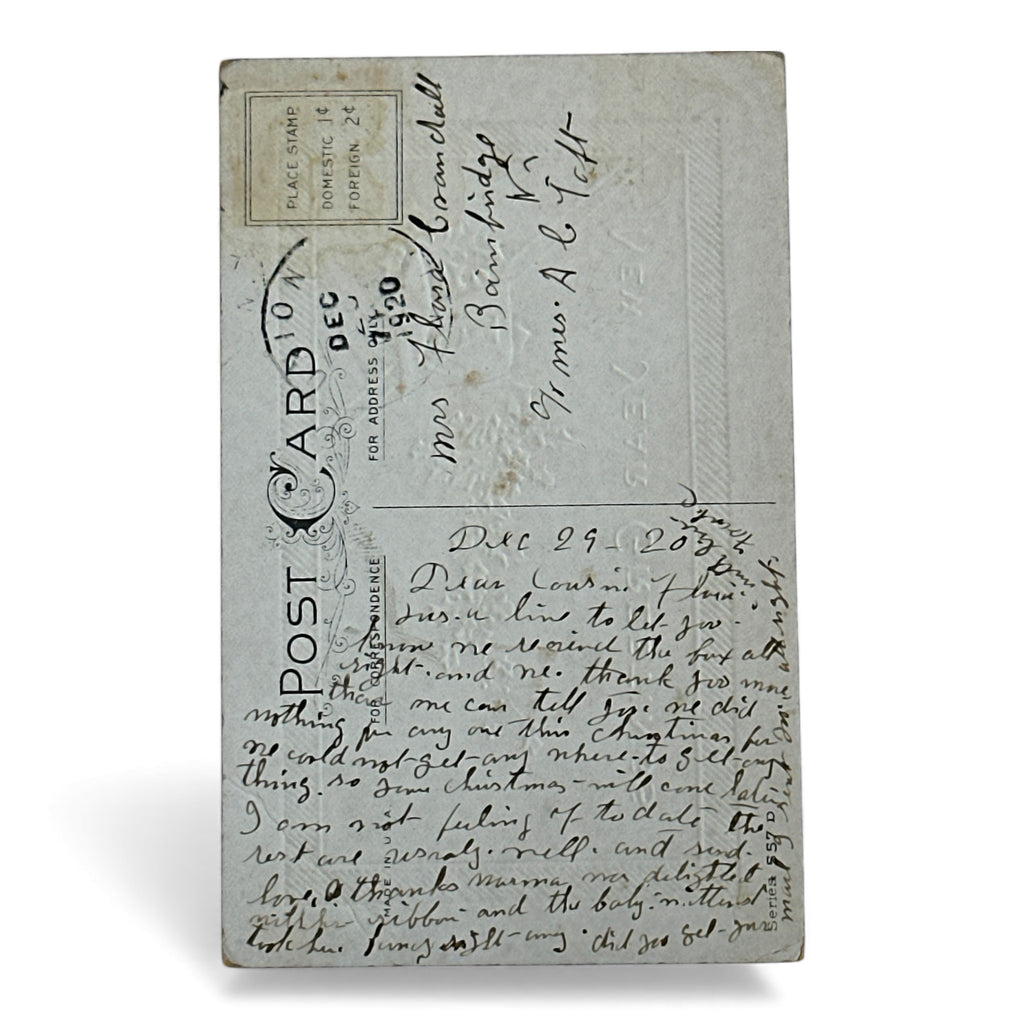 POST CARD
PLACE STAMP
DOMESTIC 1¢
FOREIGN 2¢
10
DEC
1920
FOR ADDRESS ONLY.
FOR CORRESPONDENCE
Mrs Crandall
Bainbridge
N Y
Mrs. A C Taft
Dec 29 - 20
Dear Cousin
Jus. a line to let you
know we the box all
right. and we. thank you more
than we can tell you. we did
nothing for any one this Christmas for
we could not get any where. to get any
thing. so your Christmas will come later
I am not feeling to date the
rest are well. and send.
love, thanks Norma was delighted
with ribbon and the baby. mittens
took her fancy right away. did you get your
mail I sent you. all right
MADE IN U.S.A
Series 557 D